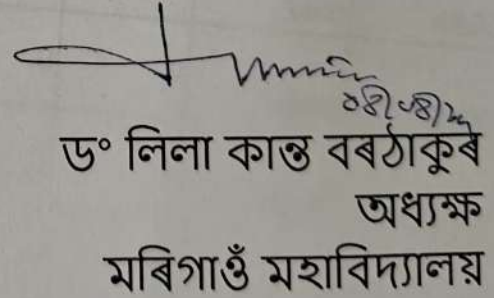 ড° লিলা কান্ত বৰঠাকুৰ
অধ্যক্ষ
মৰিগাওঁ মহাবিদ্যালয়